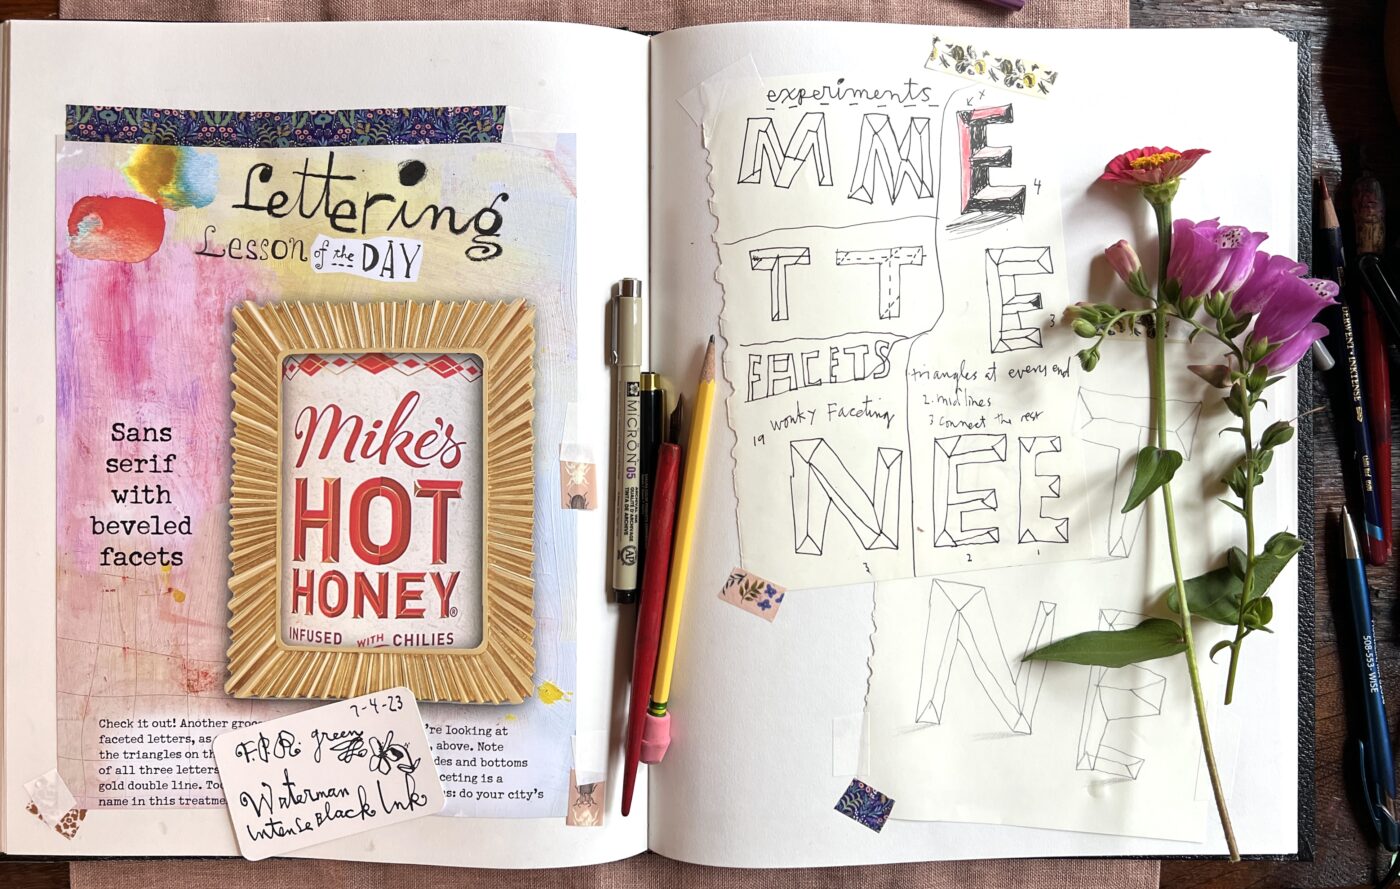 Lettering
Lesson of the DAY
Sans
serif
with
beveled
facets
Mike's
HOT
HONEY®
INFUSED WITH CHILIES
Check it out! Another
faceted letters, as
the triangles on th
of all three letters
gold double line. Too
name in this treatme
're looking at
, above. Note
des and bottoms
ceting is a
s: do your city's
7-4-23
F.P.R. green
Waterman
Intense Black Ink
MICRON 05
experiments
M M E
4
T T E
3
FACETS
triangles at every end
2. midlines
3 connect the rest
wonky Faceting
19
N E E
3 2 1
T
N E
DERWENT INKTENSE
508-553-WISE